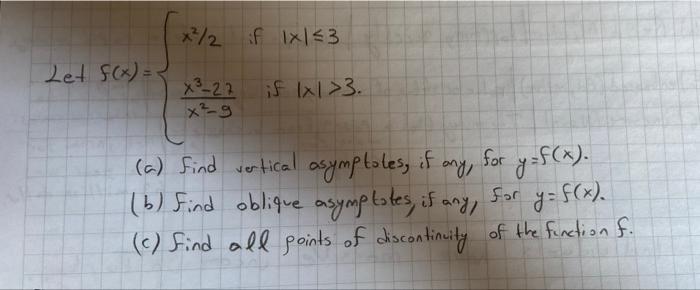 x²/2 if |x| ≤ 3
Let f(x) =
x³-27 / x²-9 if |x| > 3.
(a) Find vertical asymptotes, if any, for y=f(x).
(b) Find oblique asymptotes, if any, for y=f(x).
(c) Find all points of discontinuity of the function f.